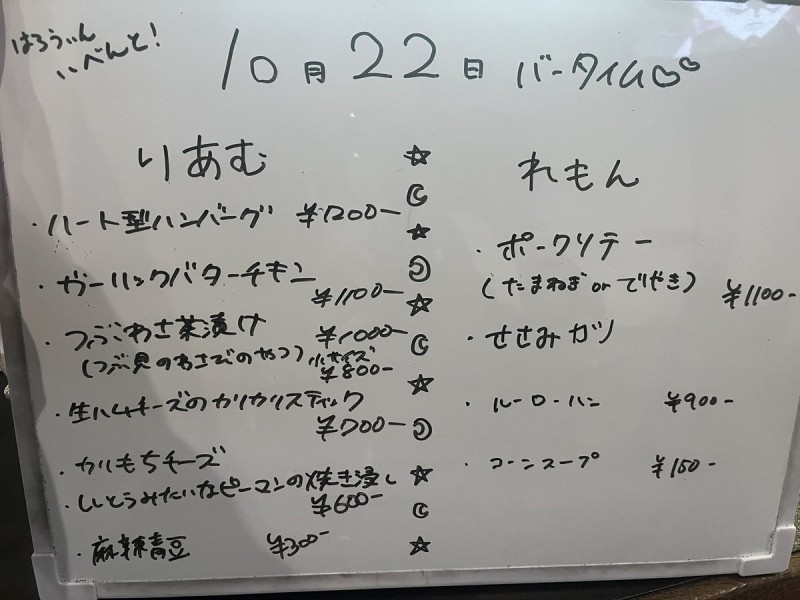 はろうぃん
いべんと!
10月22日 バータイム♡♡
りあむ
・ハート型ハンバーグ ¥1200-
・ガーリックバターチキン
¥1100-
・つぶわさ茶漬け ¥1000-
(つぶ貝のわさびのやつ) 小サイズ
¥800-
・生ハムチーズのカリカリスティック
¥700-
・カリもちチーズ
・ししとうみたいなピーマンの焼き浸し
¥600-
・麻辣青豆 ¥300-
れもん
・ポークソテー
(たまねぎ or てりやき) ¥1100-
・ささみカツ
・ルーローハン ¥900-
・コーンスープ ¥150-